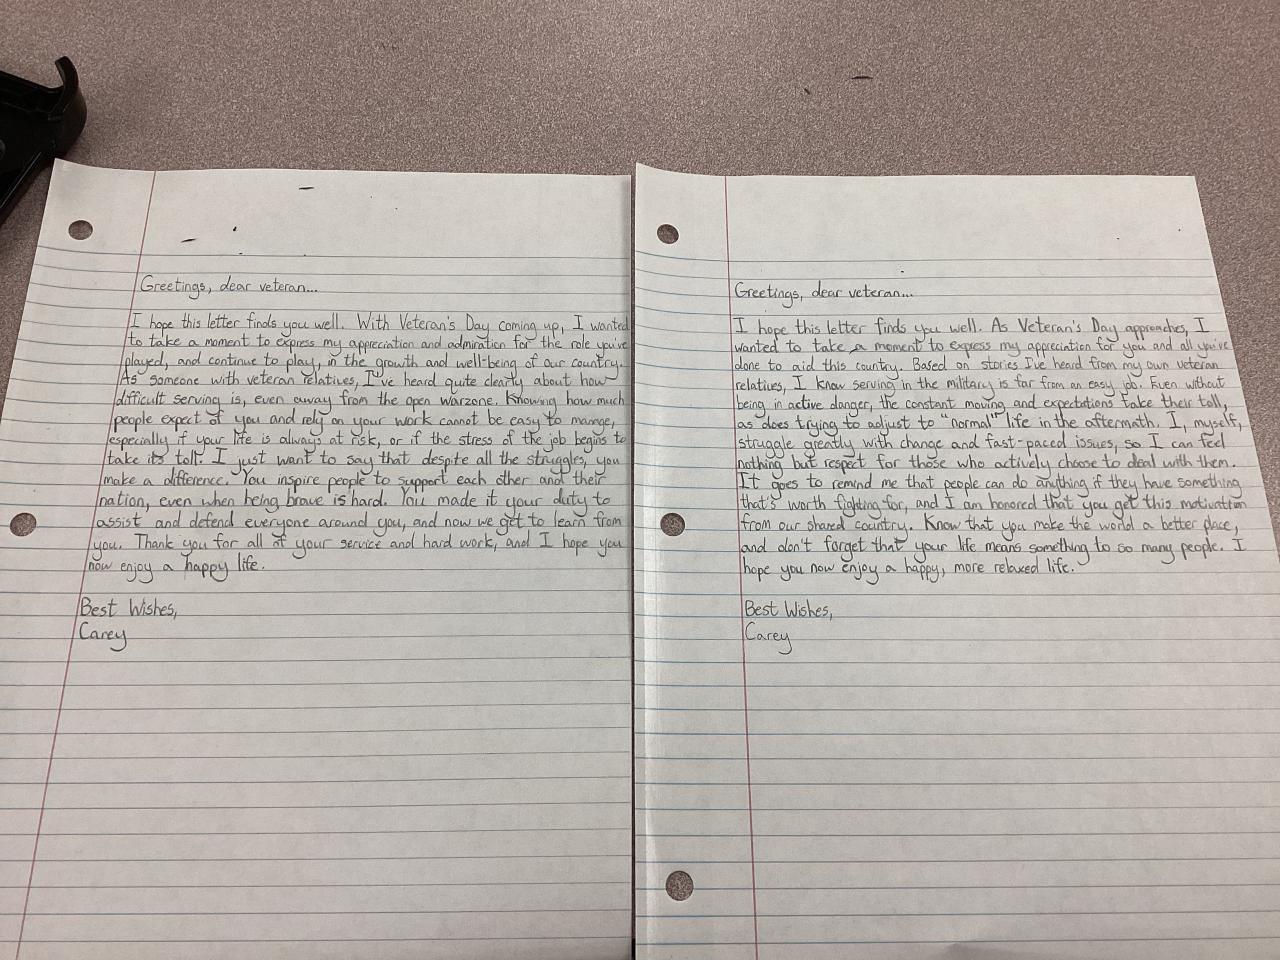 Greetings, dear veteran...
I hope this letter finds you well. With Veteran's Day coming up, I wanted
to take a moment to express my appreciation and admiration for the role you've
played, and continue to play, in the growth and well-being of our country.
As someone with veteran relatives, I've heard quite clearly about how
difficult serving is, even away from the open warzone. Knowing how much
people expect of you and rely on your work cannot be easy to manage,
especially if your life is always at risk, or if the stress of the job begins to
take its toll. I just want to say that despite all the struggles, you
make a difference. You inspire people to support each other and their
nation, even when being brave is hard. You made it your duty to
assist and defend everyone around you, and now we get to learn from
you. Thank you for all of your service and hard work, and I hope you
now enjoy a happy life.
Best Wishes,
Carey
Greetings, dear veteran...
I hope this letter finds you well. As Veteran's Day approaches, I
wanted to take a moment to express my appreciation for you and all you've
done to aid this country. Based on stories I've heard from my own veteran
relatives, I know serving in the military is far from an easy job. Even without
being in active danger, the constant moving and expectations take their toll,
as does trying to adjust to "normal" life in the aftermath. I, myself,
struggle greatly with change and fast-paced issues, so I can feel
nothing but respect for those who actively choose to deal with them.
It goes to remind me that people can do anything if they have something
that's worth fighting for, and I am honored that you get this motivation
from our shared country. Know that you make the world a better place,
and don't forget that your life means something to so many people. I
hope you now enjoy a happy, more relaxed life.
Best Wishes,
Carey